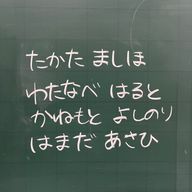 たかた ましほ
わたなべ はると
かねもと よしのり
はまだ あさひ